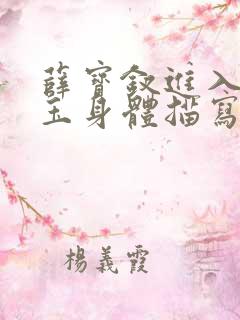 薛寶釵進入
玉身體描寫
楊義霞